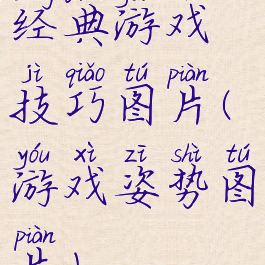 经典游戏
jì qiǎo tú piàn
技巧图片(
yóu xì zī shì tú
游戏姿势图
piàn
片)